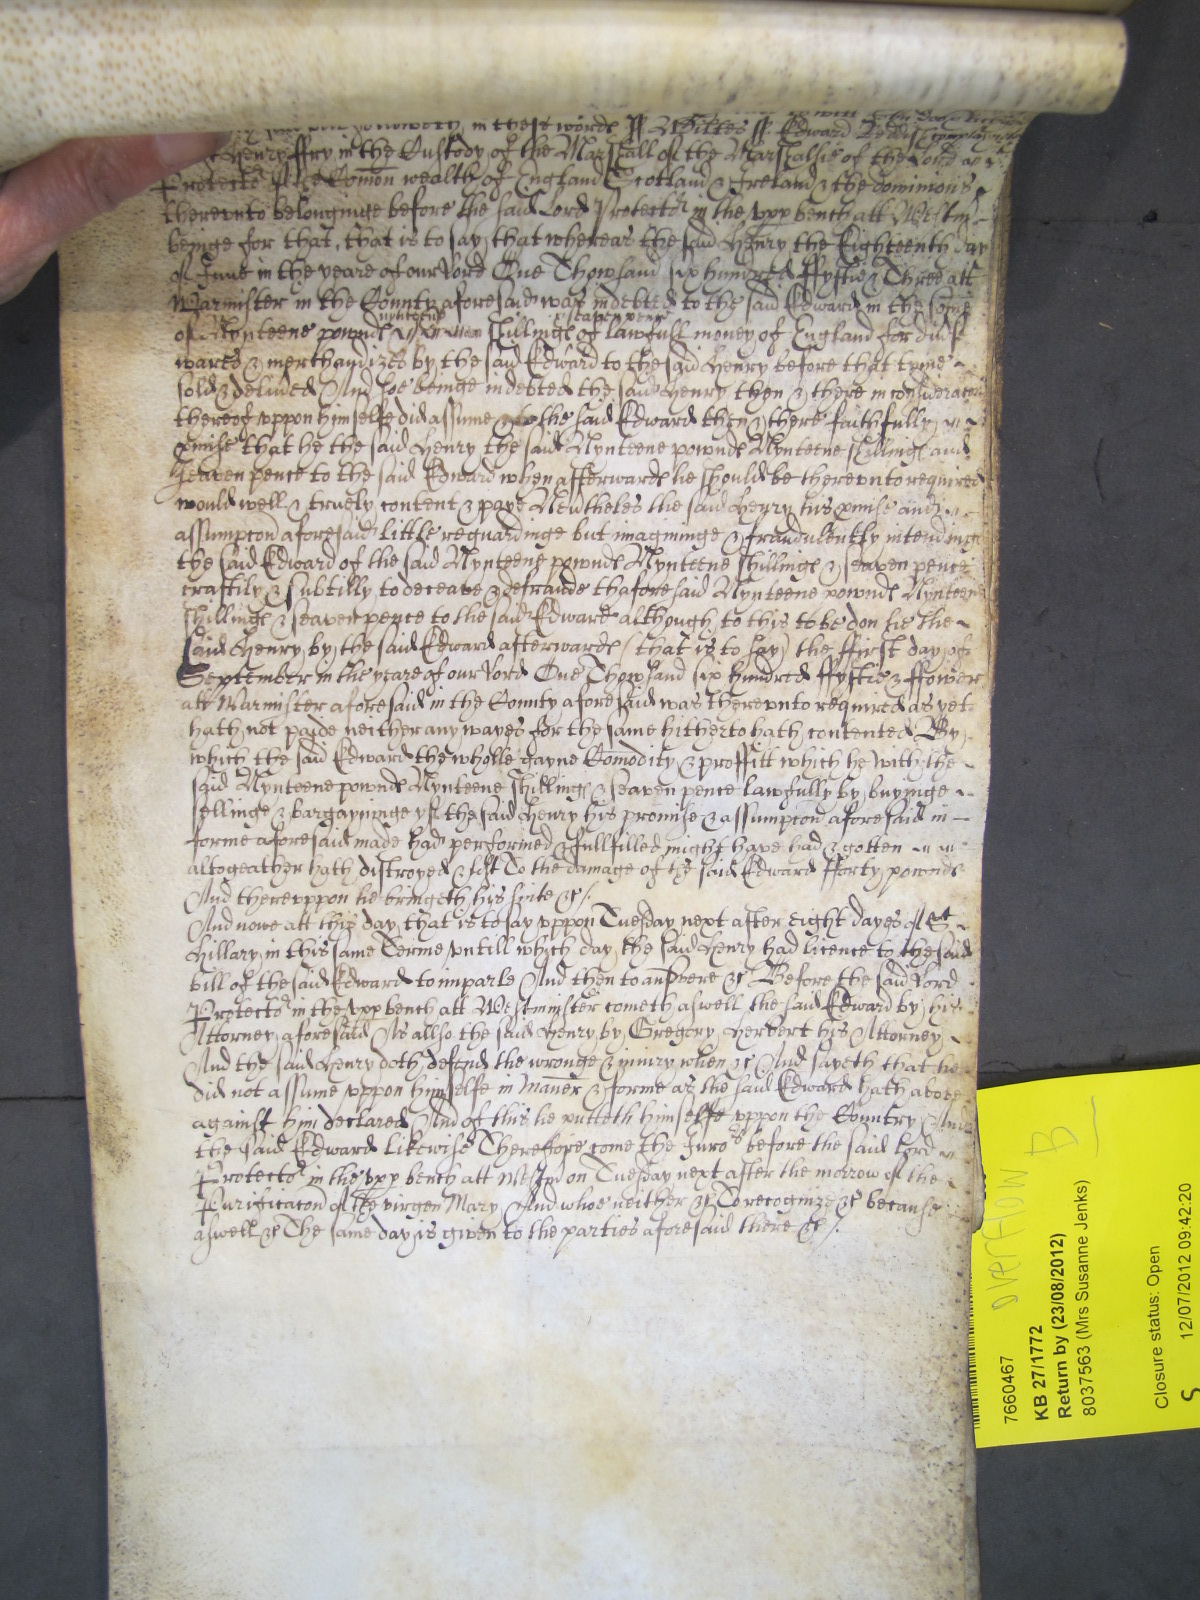 in these words ss Wiltes ss Edward
Henry ffry in the Custody of the Marshall of the Marshalsie of the Lord
Protector of the Comon wealth of England Scotland & Ireland & the dominions
therevnto belonginge before the said Lord Protector in the vpp bench att Westm
beinge for that, that is to say, that whereas the said Henry the Eighteenth day
of June in the yeare of our Lord One Thowsand six hundred ffyftie & Three att
Warmister in the County aforesaid was indebted to the said Edward in the some
nynteene & seaven pence
of Nynteene pownds shillings of lawfull money of England for diu's
wares & merchandizes by the said Edward to the said Henry before that tyme
sold & deliued And soe beinge indebted the said Henry then & there in consideracon
thereof vppon himselfe did assume & to the said Edward then & there faithfully
pmise that he the said Henry the said Nynteene pownds Nynteene shillings and
seaven pence to the said Edward when afterwards he should be therevnto required
would well & truely content & paye Neu'theles the said Henry his pmise and
assumpcon aforesaid little reguardinge but imagininge & fraudulently intendinge
the said Edward of the said Nynteene pownds Nynteene shillings & seaven pence
craftily & subtilly to deceave & defraude thaforesaid Nynteene pownds Nynteen
shillings & seaven pence to the said Edward although to this to be don he the
said Henry by the said Edward afterwards (that is to say) the ffirst day of
September in the yeare of our Lord One Thowsand six hundred ffyftie & ffower
att Warmister aforesaid in the County aforesaid was therevnto required as yet
hath not paide neither any wayes for the same hitherto hath contented By
which the said Edward the wholle gayne Comodity & proffitt which he with the
said Nynteene pownds Nynteene shillings & seaven pence lawfully by buyinge
sellinge & bargayninge yf the said Henry his promise & assumpcon aforesaid in
forme aforesaid made had performed & fullfilled might have had & gotten
altogeather hath distroyed & lost To the damage of the said Edward fforty pownds
And therevppon he bringeth his suite &c/.
And nowe att this day, that is to say vppon Tuesday next after eight dayes of St
Hillary in this same Terme vntill which day the said Henry had licence to the said
bill of the said Edward to imparle And then to answere &c Before the said Lord
Protector in the vpp bench att Westminster cometh aswell the said Edward by his
Attorney aforesaid As allso the said Henry by Gregory Herbert his Attorney
And the said Henry doth defend the wronge & iniury when &c And sayeth that he
did not assume vppon himselfe in maner & forme as the said Edward hath above
against him declared And of this he putteth himselfe vppon the Country And
the said Edward likewise Therefore come the Juro's before the said Lord
Protector in the vpp bench att Westm on Tuesday next after the morrow of the
Purificacon of the virgen Mary And whoe neither &c To recognize &c because
aswell &c The same day is given to the parties aforesaid there &c/.
overflow B
7660467
KB 27/1772
Return by (23/08/2012)
8037563 (Mrs Susanne Jenks)
Closure status: Open
12/07/2012 09:42:20
S